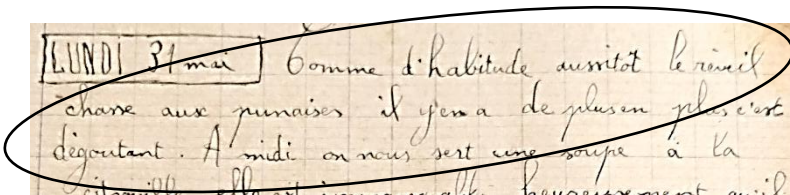 LUNDI 31 mai Comme d'habitude aussitôt le réveil
chasse aux punaises il y'en a de plus en plus c'est
dégoutant. A midi on nous sert une soupe à la
citrouille elle est heureusement qu'il